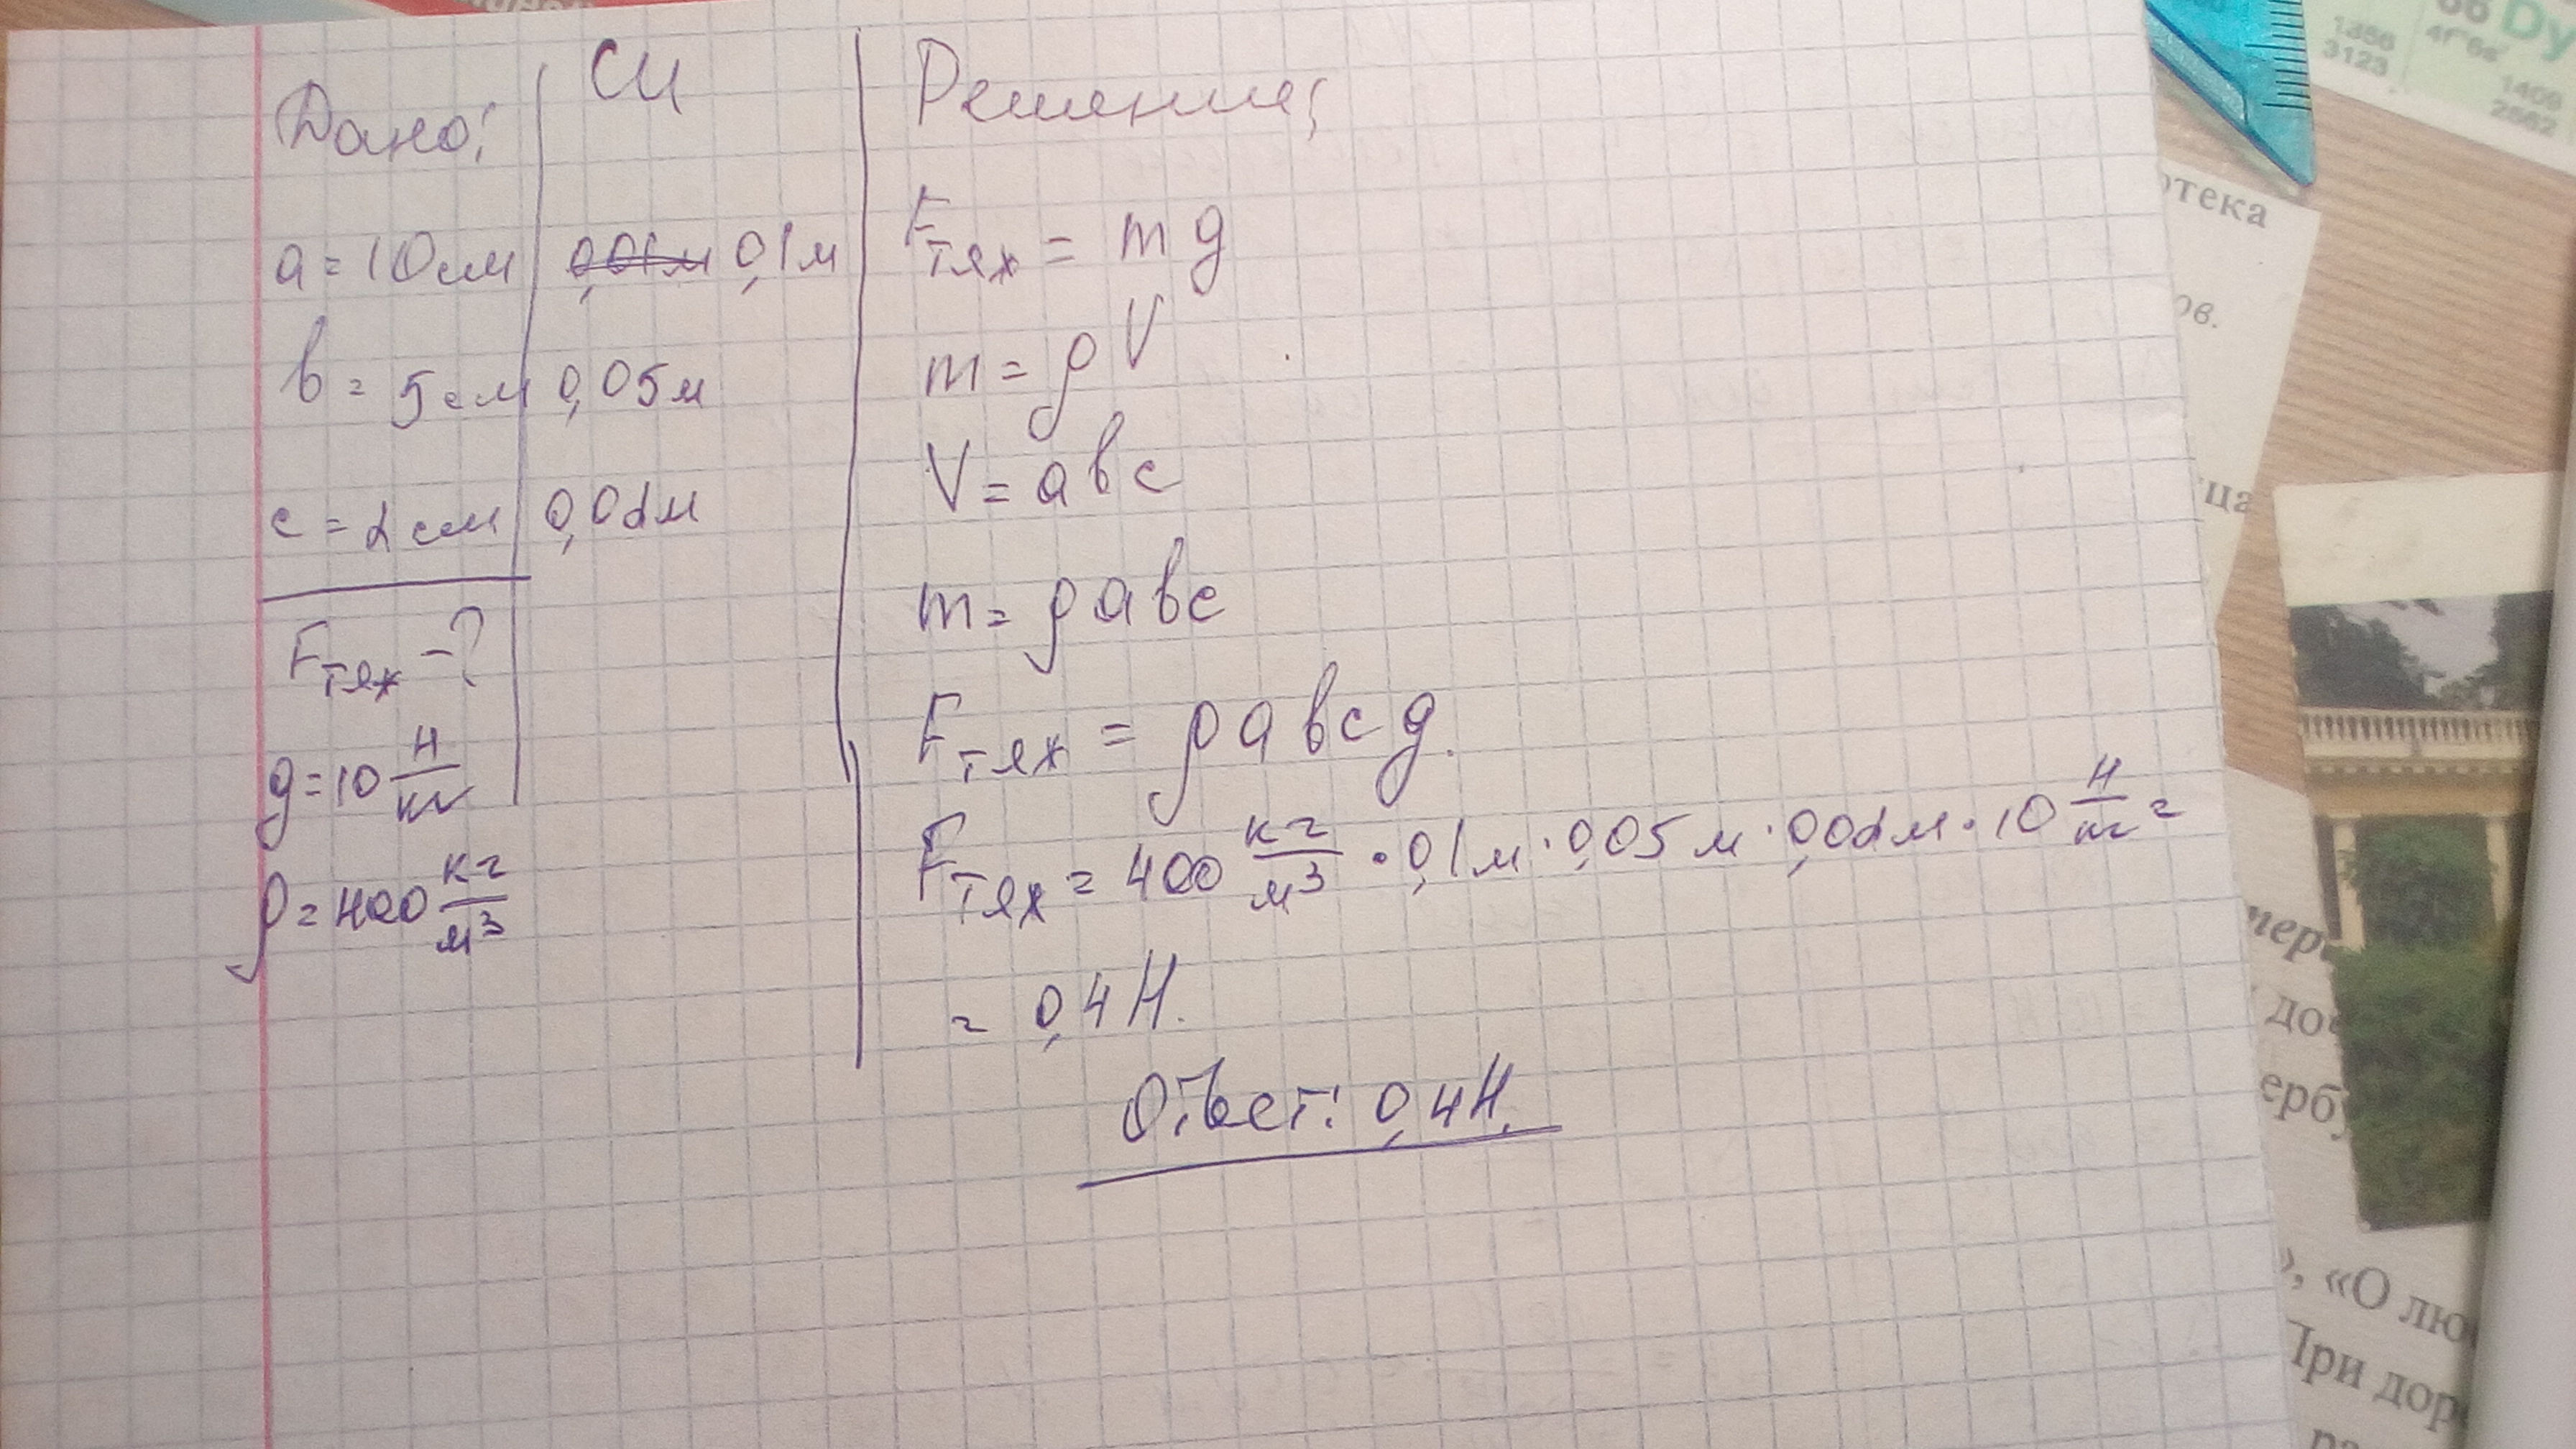 Дано:
a = 10 см
в = 5 см
с = 2 см
Fтяж - ?
g = 10 Н/кг
ρ = 400 кг/м³
СИ
0,01м 0,1м
0,05м
0,02м
Решение:
Fтяж = mg
m = ρV
V = авс
m = ρавс
Fтяж = ρавсg.
Fтяж = 400 кг/м³ · 0,1м · 0,05м · 0,02м · 10 Н/кг =
= 0,4 Н.
Ответ: 0,4Н.
66 Dy
1356
3123
1409
2562
отека
ов.
ца
ерб
», «О лю
При дор